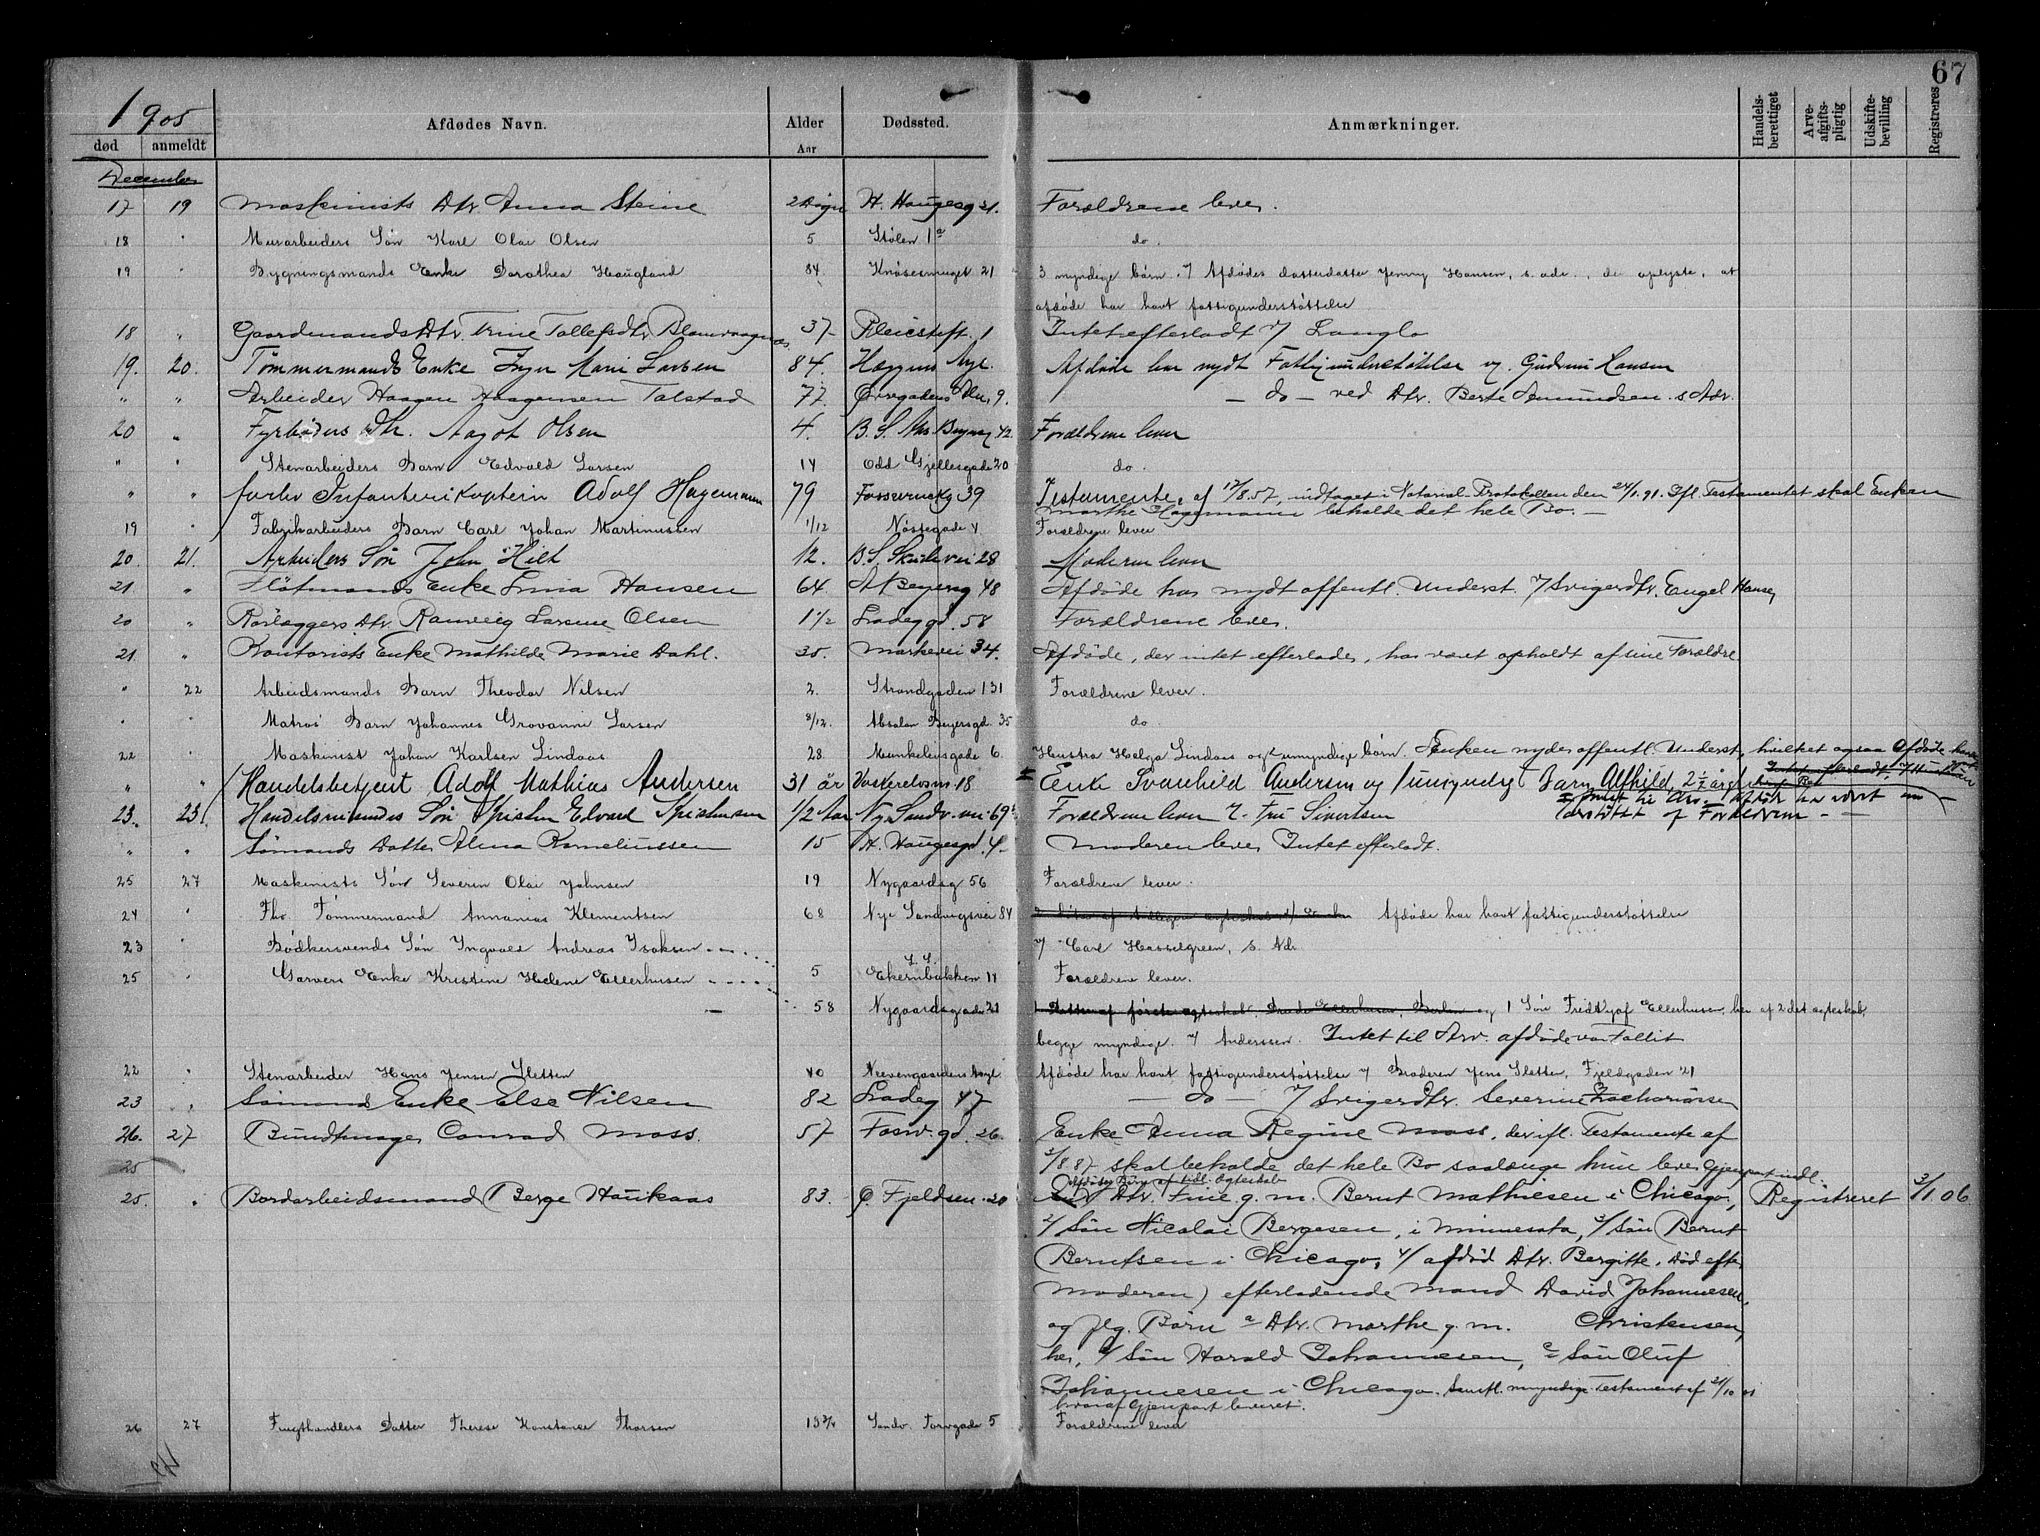 67
1905
død anmeldt Afdødes Navn. Alder Aar Dødssted. Anmærkninger. Handels-berettiget Arve-afgifts-pligtig Udskifte-bevilling Registreres
December
17 19 Maskinists Dtr. Anna Steine 2 Døgn H. Haugesg 21. Forældrene lever.
18 " Murarbeiders Søn Karl Olai Olsen 5 Stølen 1a do.
19 " Bygningsmands Enke Dorothea Haugland 84 Knøsesmuget 21 3 myndige børn. V Afdødes datterdatter Jenny Hansen, s. ade., der oplyste, at
afdøde har havt fattigunderstøttelse
18 " Gaardmands Dtr. Trine Tollefsdtr. 37 Pleiestift. 1 Intet efterladt V Langlo
19. 20. Tømmermands Enke Inger Marie Larsen 84. Hæggens Asyl. Afdøde har nydt Fattigunderstøttelse v. Gudrun Hansen
" " Arbeider Haagen Haagensen Talstad 77. Øvregadens Alm. 9. — do — ved Dtr. Berte Amundsen. s Adr.
20 " Fyrbøders Dtr. Aagot Olsen 4. B. S. Abs. Beyersg 42. Forældrene lever
" " Stenarbeiders Barn Edvald Larsen 14 Odd Gjellesgade 20 do.
" " forhv Infanterikaptein Adolf Hagemann 79 Fosswincksg 39 Testamente, af 12/8.57, indtaget i Notarial-Protokollen den 24/1.91. Ifl. Testamentet skal Enken
Marthe Hagemann beholde det hele Bo. —
19 " Fabrikarbeiders Barn Carl Johan Martinussen 1/12 Nøstegade 4 Forældrene lever
20. 21. Arbeiders Søn John Hilt 12. B. S. Skulevei 28 Moderen lever
21 " Fløtmands Enke Lina Hansen 64. A Beyersg 48 Afdøde har nydt offentl. Underst. V Svigerdtr. Engel Hansen
20 " Rørlæggers Dtr. Ranveig Larsine Olsen 1 1/2 Ladegd. 58 Forældrene lever.
21 " Kontorists Enke Mathilde Marie Dahl. 30. Markevei 34. Afdøde, der intet efterlader, har været opholdt af sine Forældre
" 22 Arbeidsmands Barn Theodor Nilsen 2. Strandgaden 131 Forældrene lever.
" " Matros' Barn Johannes Giovanni Larsen 8/12. Absalon Beyersgd. 35 do
22 " Maskinist Johan Karlsen Lindaas 28. Munkeliusgade 6. Hustru Helga Lindaas og 2 umyndige børn. Enken nyder offentl. Underst., hvilket ogsaa Afdøde havde
" " Handelsbetjent Adolf Mathias Andersen 31 år 18 Enke Svanhild Andersen og 1 umyndig Barn Alfhild, 2 1/2 år
Intet til Arv. Afdøde har været
af Forældrene —
23. 23. Handelsmandes Søn Kristen Edvard Kristensen 1/2 Aar Ny Sandv. vei 69 Forældrene lever V. Fru Sivertsen
" " Sømands Datter Alma Korneliussen 15 H. Haugesgd. 4 Moderen lever Intet efterladt.
25 27 Maskinists Søn Severin Olai Johnsen 19 Nygaardsg 56 Forældrene lever.
24 " Fhv. Tømmermand Annanias Klementsen 68 Nye Sandvigsvei 84 Afdøde har havt fattigunderstøttelse
23 " Bødkersvends Søn Ingvald Andreas Isaksen V Carl Hasselgreen, s. Adr.
25 " Garvers Enke Kristine Helene Ellerhusen 5 L. S. Ekernbakken 11 Forældrene lever.
58 Nygaardsgaden 21 1 Datter af første egteskab, Ellerhusen, Berlin og 1 Søn Fredthjof Ellerhusen, her af 2det egteskab,
begge myndige. V Anderssen. Intet til Arv. afdøde var Fallit
22 " Stenarbeider Hans Jensen Sletten 40 Neevengaardens Asyl. Afdøde har havt fattigunderstøttelse V Broderen Jens Sletten, Fjeldgaden 21
23 " Sømands Enke Else Nilsen 82 Ladeg 47 — do — V Svigerdtr. Severine Zachariasen
26. 27 Bundtmager Conrad Moss. 57 Fosw. gd. 26. Enke Anna Regine Moss, der ifl. Testamente af
25 3/8.87 skal beholde det hele Bo saalænge hun lever Gjenpart indl.
Afdødes Børn af tidl. Egteskab
25. " Bordarbeidsmand Berge Haukaas 83. Ø. Fjeldsm. 20 Dtr. Fine g. m. Bernt Mathiesen i Chicago, Registreret 3/1.06.
2/ Søn Nicolai Bergesen, i Minnesota, 3/ Søn Bernt
Berntsen i Chicago, 4/ afdød Dtr. Bergitte, død efter
Moderen) efterladende Mand David Johannesen,
og flg. Børn a Dtr. Marthe g. m. Christensen,
her, b/ Søn Harald Johannesen, c Søn Oluf
Johannesen i Chicago. Samtl. myndige. Testament af 21/10 01
hvoraf Gjenpart leveret.
26 27 Frugthandlers Datter Therese Konstanse Thorsen 13 3/4 Sandv. Torvgade 5 Forældrene lever